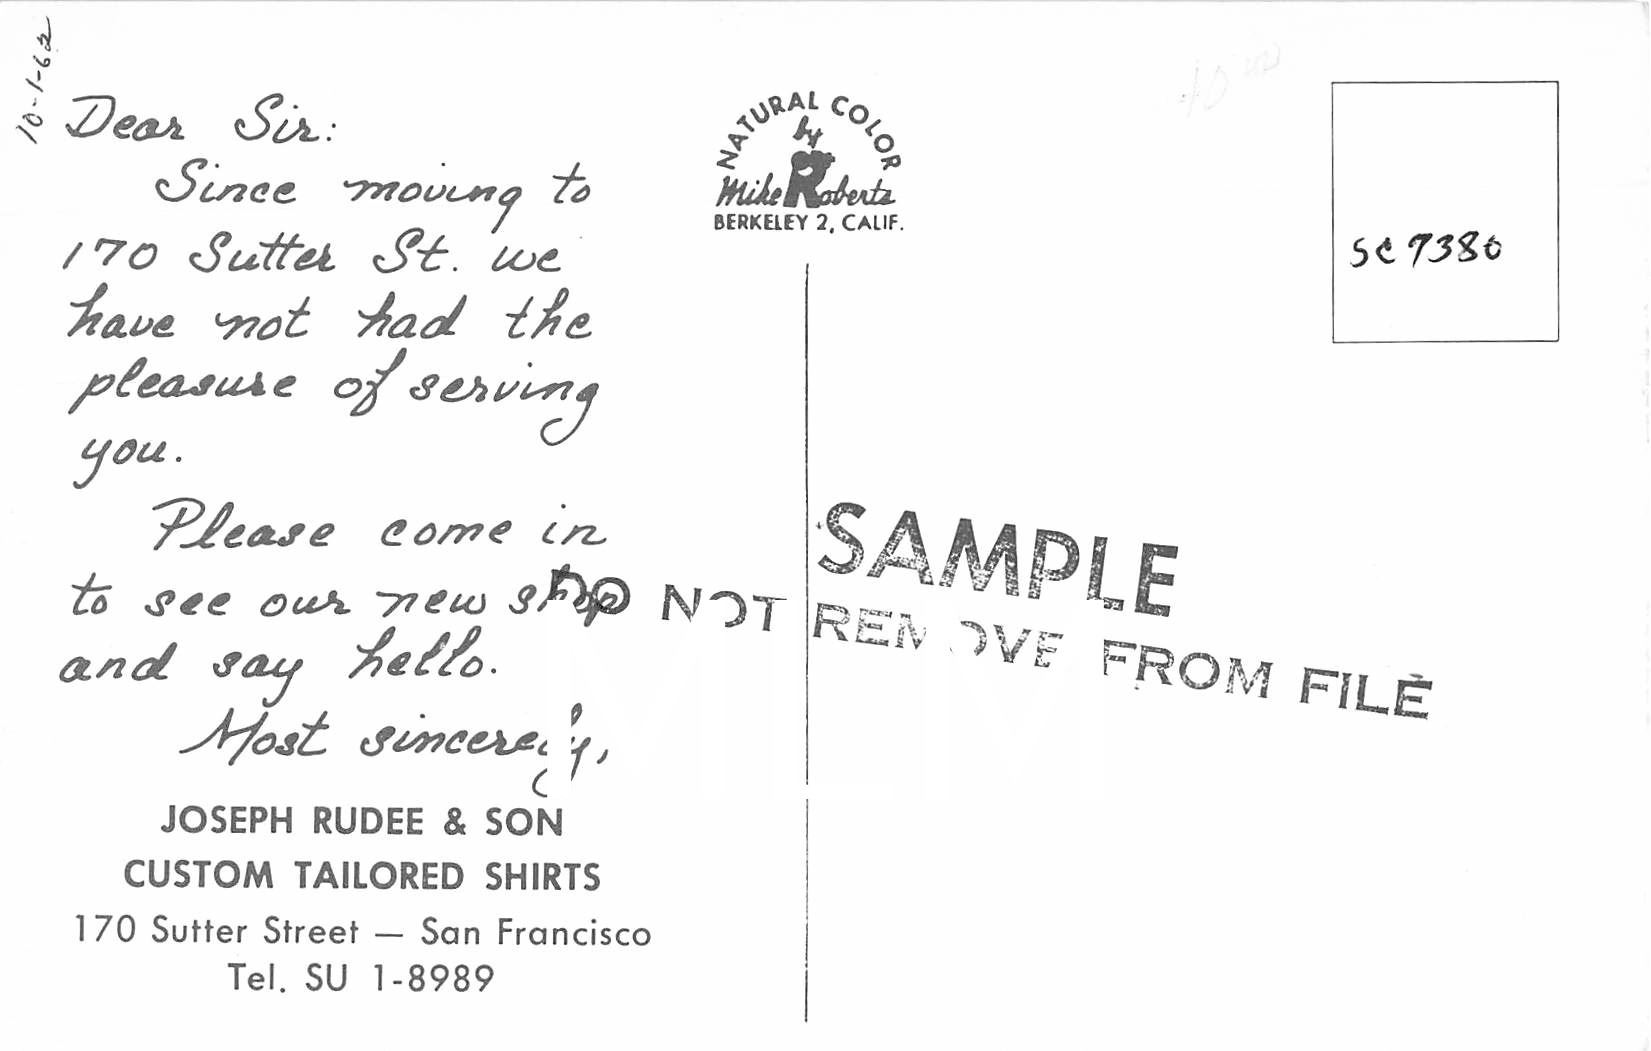 10-1-62
Dear Sir:
Since moving to
170 Sutter St. we
have not had the
pleasure of serving
you.
Please come in
to see our new shop
and say hello.
Most sincerely,
JOSEPH RUDEE & SON
CUSTOM TAILORED SHIRTS
170 Sutter Street — San Francisco
Tel. SU 1-8989
NATURAL COLOR
by
Mike Roberts
BERKELEY 2, CALIF.
SC7380
SAMPLE
DO NOT REMOVE FROM FILE